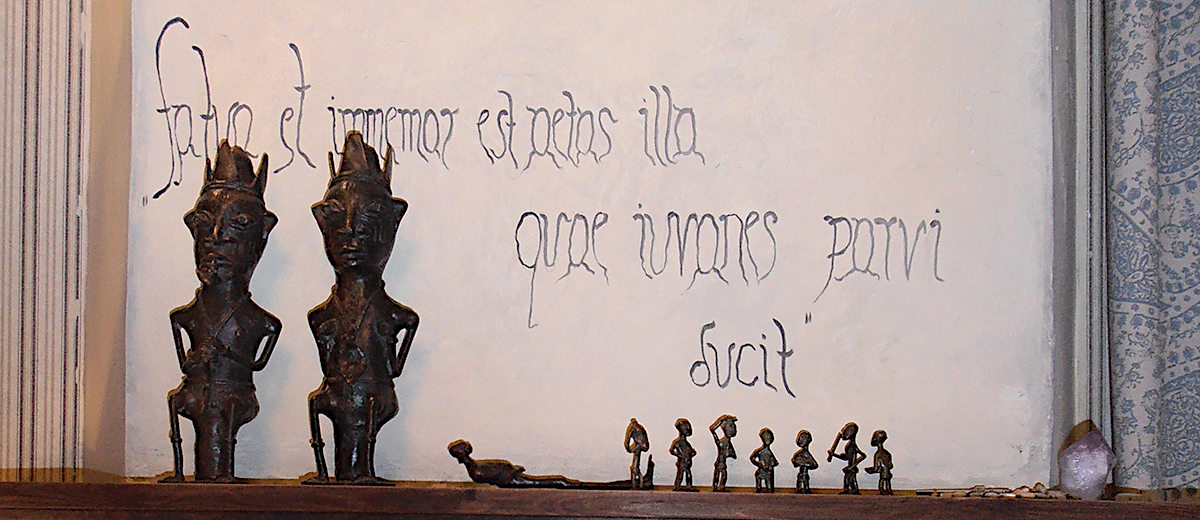 "fatua et immemor est aetas illa
quae iuvanes parvi
ducit"